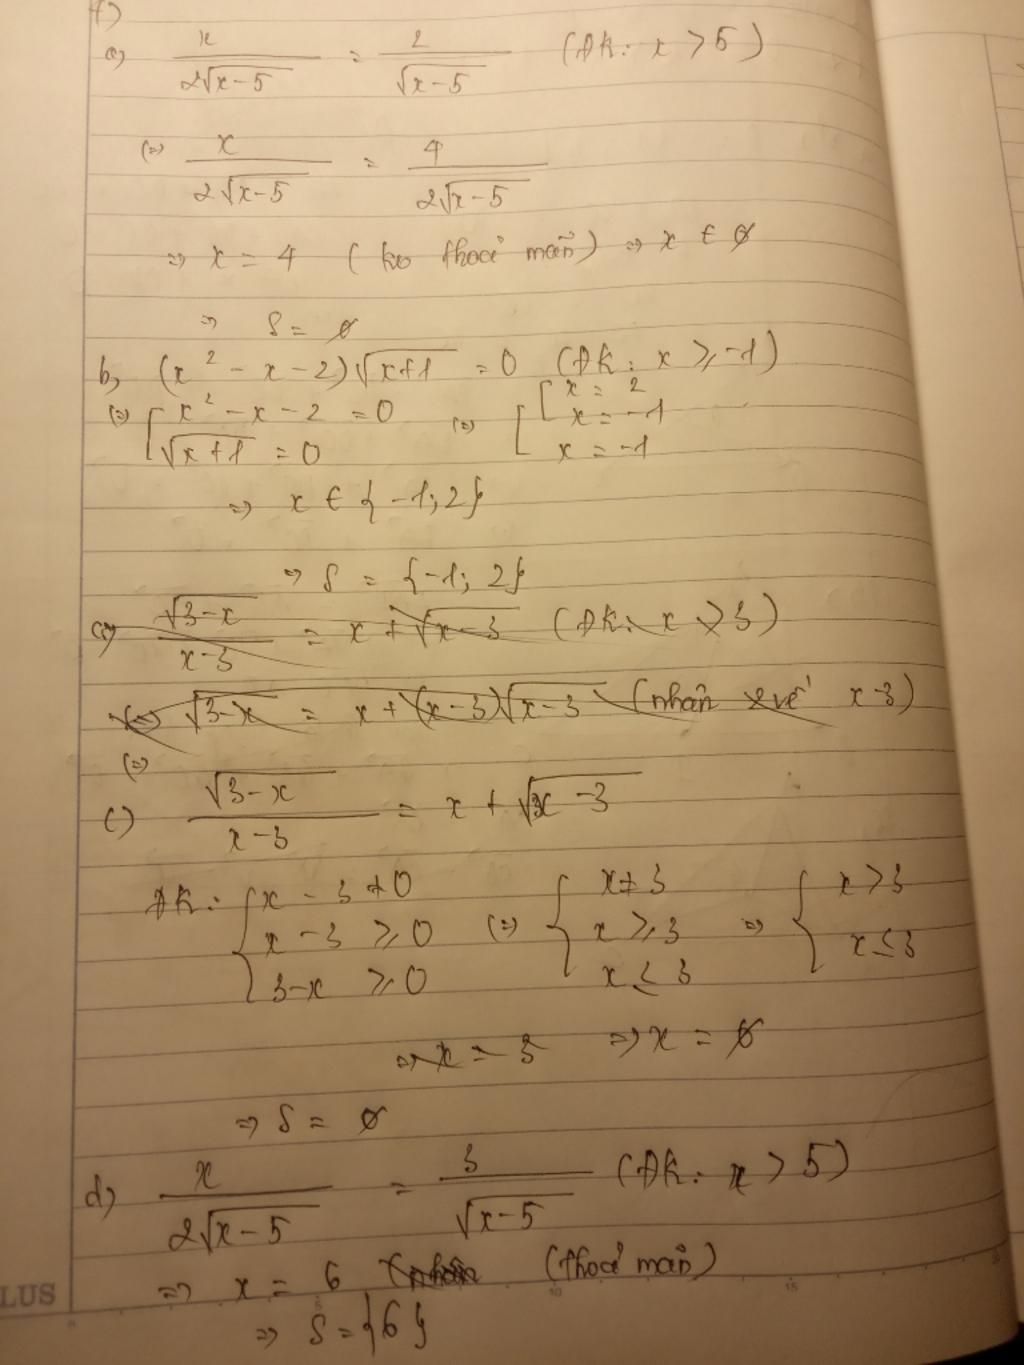 f)
a) x / 2√x-5 = 2 / √x-5 (ĐK: x > 5)
(=) x / 2√x-5 = 4 / 2√x-5
=> x = 4 (ko thoả mãn) => x ∈ ∅
=> S = ∅
b, (x² - x - 2)√x+1 = 0 (ĐK: x ≥ -1)
(=) [ x² - x - 2 = 0 (=) [ [ x = 2
√x+1 = 0 x = -1
x = -1
=> x ∈ {-1; 2}
=> S = {-1; 2}
c) √3-x / x-3 = x + √x-3 (ĐK: x > 3)
(=) √3-x = x + (x-3)√x-3 (nhân 2 vế x-3)
(=)
c) √3-x / x-3 = x + √x-3
ĐK: { x - 3 ≠ 0 (=) { x ≠ 3 => { x > 3
x - 3 ≥ 0 x ≥ 3 x ≤ 3
3-x ≥ 0 x ≤ 3
=> x = 3 => x = ∅
=> S = ∅
d) x / 2√x-5 = 3 / √x-5 (ĐK: x > 5)
=> x = 6 (thoả mãn)
=> S = {6}
LUS
10
15